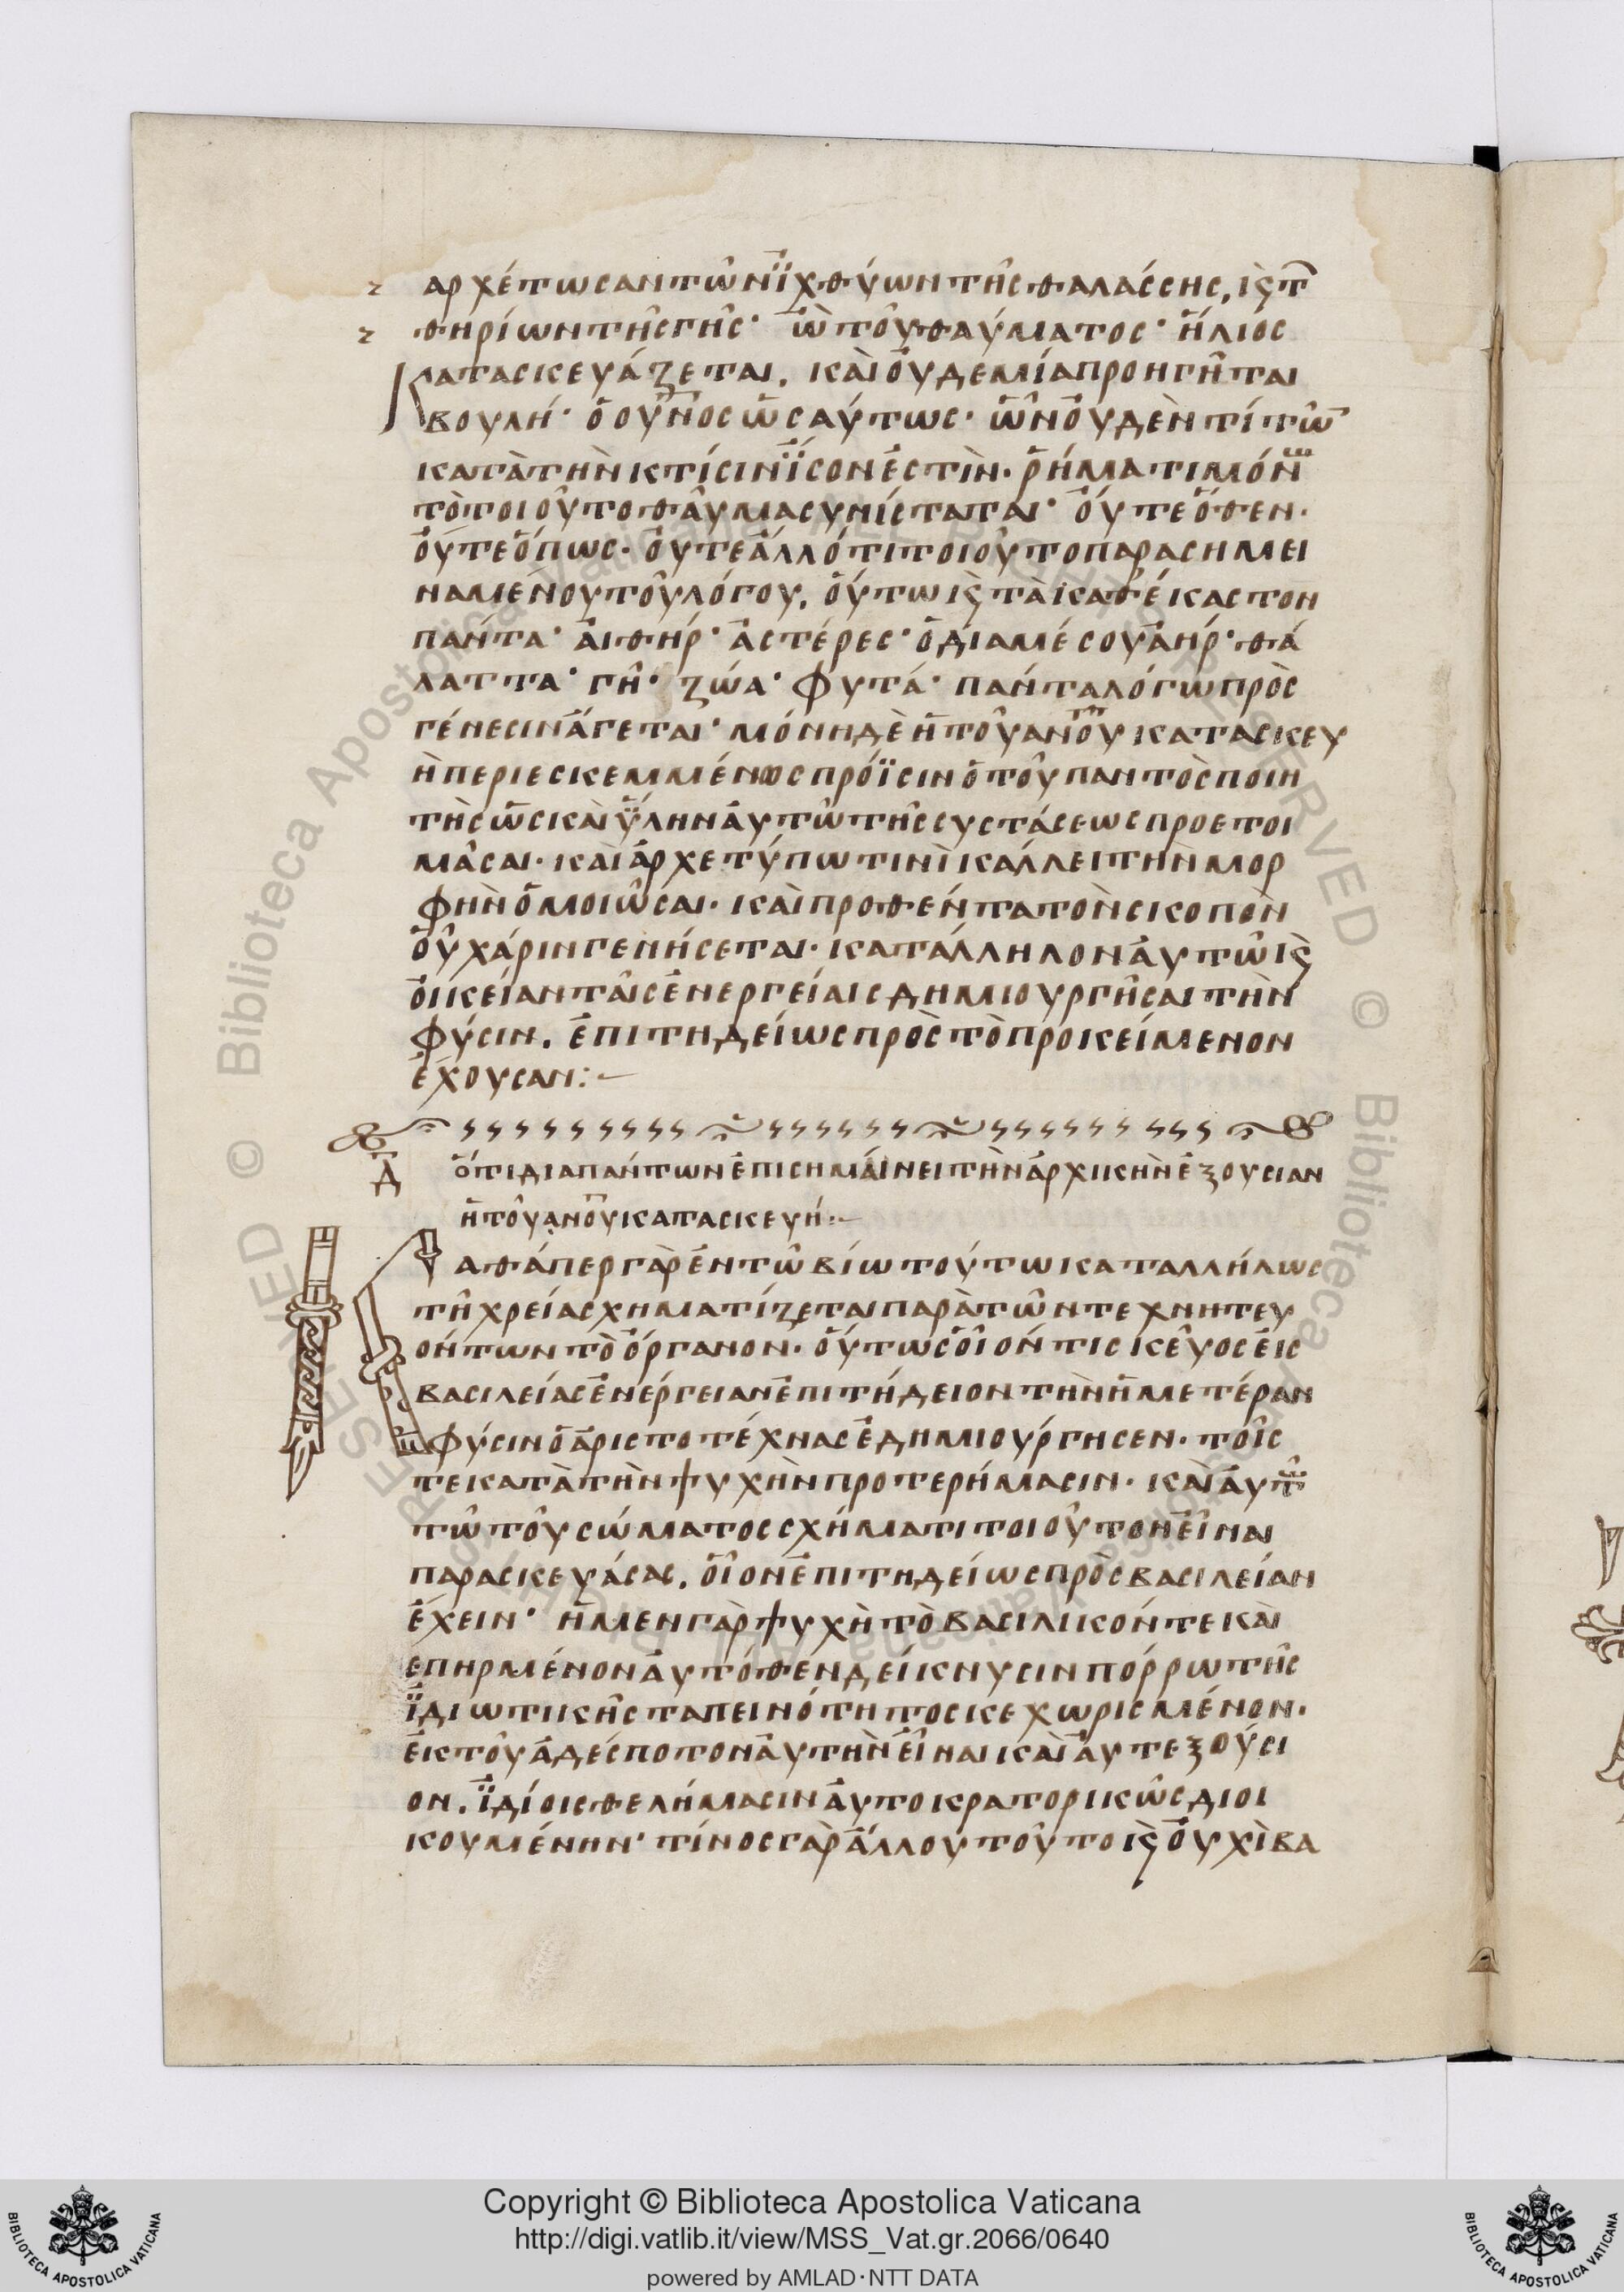 αρχέτωσαν τῶν ἰχθύων τῆς θαλάσσης, κ(αὶ) τ(ῶν)
θηρίων τῆς γῆς· ὢ τοῦ θαύματος· ἥλιος
κατασκευάζεται, καὶ οὐδεμία προηγῆται
βουλή· ὁ οὐν̅ος ὡσαύτως· ὧν οὐδὲν τί τῶ̅
κατὰ τὴν κτίσιν ἴσον ἐστὶν· ῥήματι μόνω
τὸ τοιοῦτο θαῦμα συνίσταται· οὔτε ὅθεν·
οὔτε ὅπως· οὔτε ἄλλό τι τοιοῦτο παρασημει
ναμένου τοῦ λόγου, οὕτω κ(αὶ) τὰ καθ' έκαστον
πάντα· αἰθήρ· ἀστέρες· ὁ διαμέσου ἀήρ· θά
λαττα· γῆ· ζώα· φυτά· πάντα λόγω πρὸς
γένεσιν ἄγεται· μόνη δὲ ἡ τοῦ αν̅ο̅υ κατασκευ
ὴ περιεσκεμμένως πρόϊσιν ὁ τοῦ παντὸς ποιη
τὴς ὡς καὶ ὕλην ἀυτῶ τῆς συστάσεως προετοι
μᾶσαι· καὶ ἀρχετύπω τινὶ κάλλει τὴν μορ
φὴν ὁμοιῶσαι· καὶ προθέντα τὸν σκοπὸν
οὗ χάριν γενήσεται· κατάλληλον ἀυτῶ κ(αὶ)
ὀικείαν ταῖς ἐνεργείαις δημιουργῆσαι τὴν
φύσιν. ἐπιτηδείως πρὸς τὸ προκείμενον
ἔχουσαν:–
Δ̅ ὅτι διαπάντων ἐπισημάινει τὴν ἀρχικὴν ἐξουσιαν
ἡ τοῦ αν̅ο̅υ κατασκευή:–
Καθάπερ γὰρ ἐν τῶ βίω τούτω καταλλήλως
τῆ χρεία σχηματίζεται παρὰ τῶν τεχνητευ
όντων τὸ ὄργανον· οὕτως ὁῖόν τι σκεῦος ἐις
βασιλείας ἐνέργειαν ἐπιτήδειον τὴν ἡμετέραν
φύσιν ὁ ἀριστοτέχνας ἐδημιούργησεν· τοῖς
τε κατὰ τὴν ψυχὴν προτερήμασιν· καὶ ἀυτῶ
τῶ τοῦ σώματος σχήματι τοιοῦτον εἶναι
παρασκευάσας, ὁῖον ἐπιτηδείως πρὸς βασιλείαν
ἔχειν· ἡ μεν γὰρ ψυχὴ τὸ βασιλικόν τε καὶ
επηρμένον ἀυτόθεν δείκνυσιν πόρρω τῆς
ἰδιωτικῆς ταπεινότητος κεχωρισμένον·
ἐκ τοῦ ἀδέσποτον ἀυτὴν εἶναι καὶ ἀυτεξούσι
ον, ἰδίοις θελήμασιν ἀυτοκρατορικῶς διοι
κουμένην· τίνος γὰρ ἄλλου τοῦτο κ(αὶ) ὀυχὶ βα
Copyright © Biblioteca Apostolica Vaticana
http://digi.vatlib.it/view/MSS_Vat.gr.2066/0640
powered by AMLAD·NTT DATA